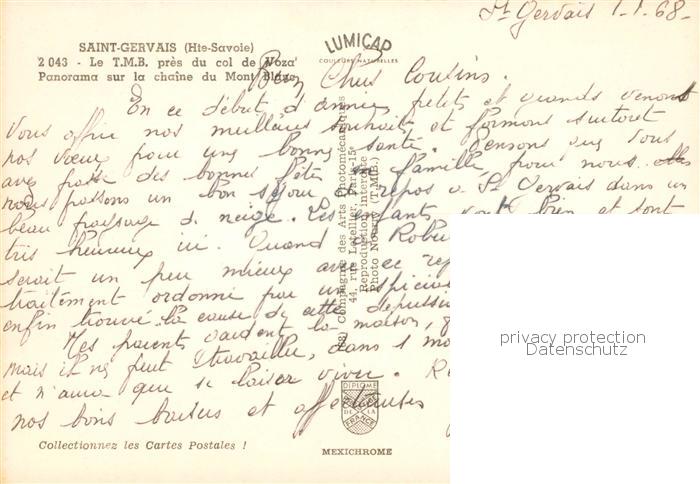 St Gervais 1.1.68-
SAINT-GERVAIS (Hte-Savoie)
2 043 - Le T.M.B. près du col de Voza
Panorama sur la chaîne du Mont Blanc
LUMICAP
COULEURS NATURELLES
Bien Chers Cousins.
En ce début d'année, petits et grands venons
vous offrir nos meilleurs souhaits et formons surtout
nos vœux pour une bonne santé. Pensons que vous
avez passé des bonnes fêtes en famille, pour nous
nous passons un bon séjour repos à St Gervais dans un
beau paysage de neige. Les enfants vont bien et sont
très heureux ici. Quand Rober
serait un peu mieux avec ce rep
traitement ordonné par un
enfin trouvé la cause de cette
Mes parents gardent la maison,
mais il ne peut travailler, dans 1 mo
et n'aura que se laisser vivre.
nos bons baisers et affectueuses
(68) Compagnie des Arts Photomécaniques
44, rue Letellier, Paris-15e
Reproduction interdite
DIPLOME
DE LA
FRANCE
Collectionnez les Cartes Postales !
MEXICHROME
privacy protection
Datenschutz